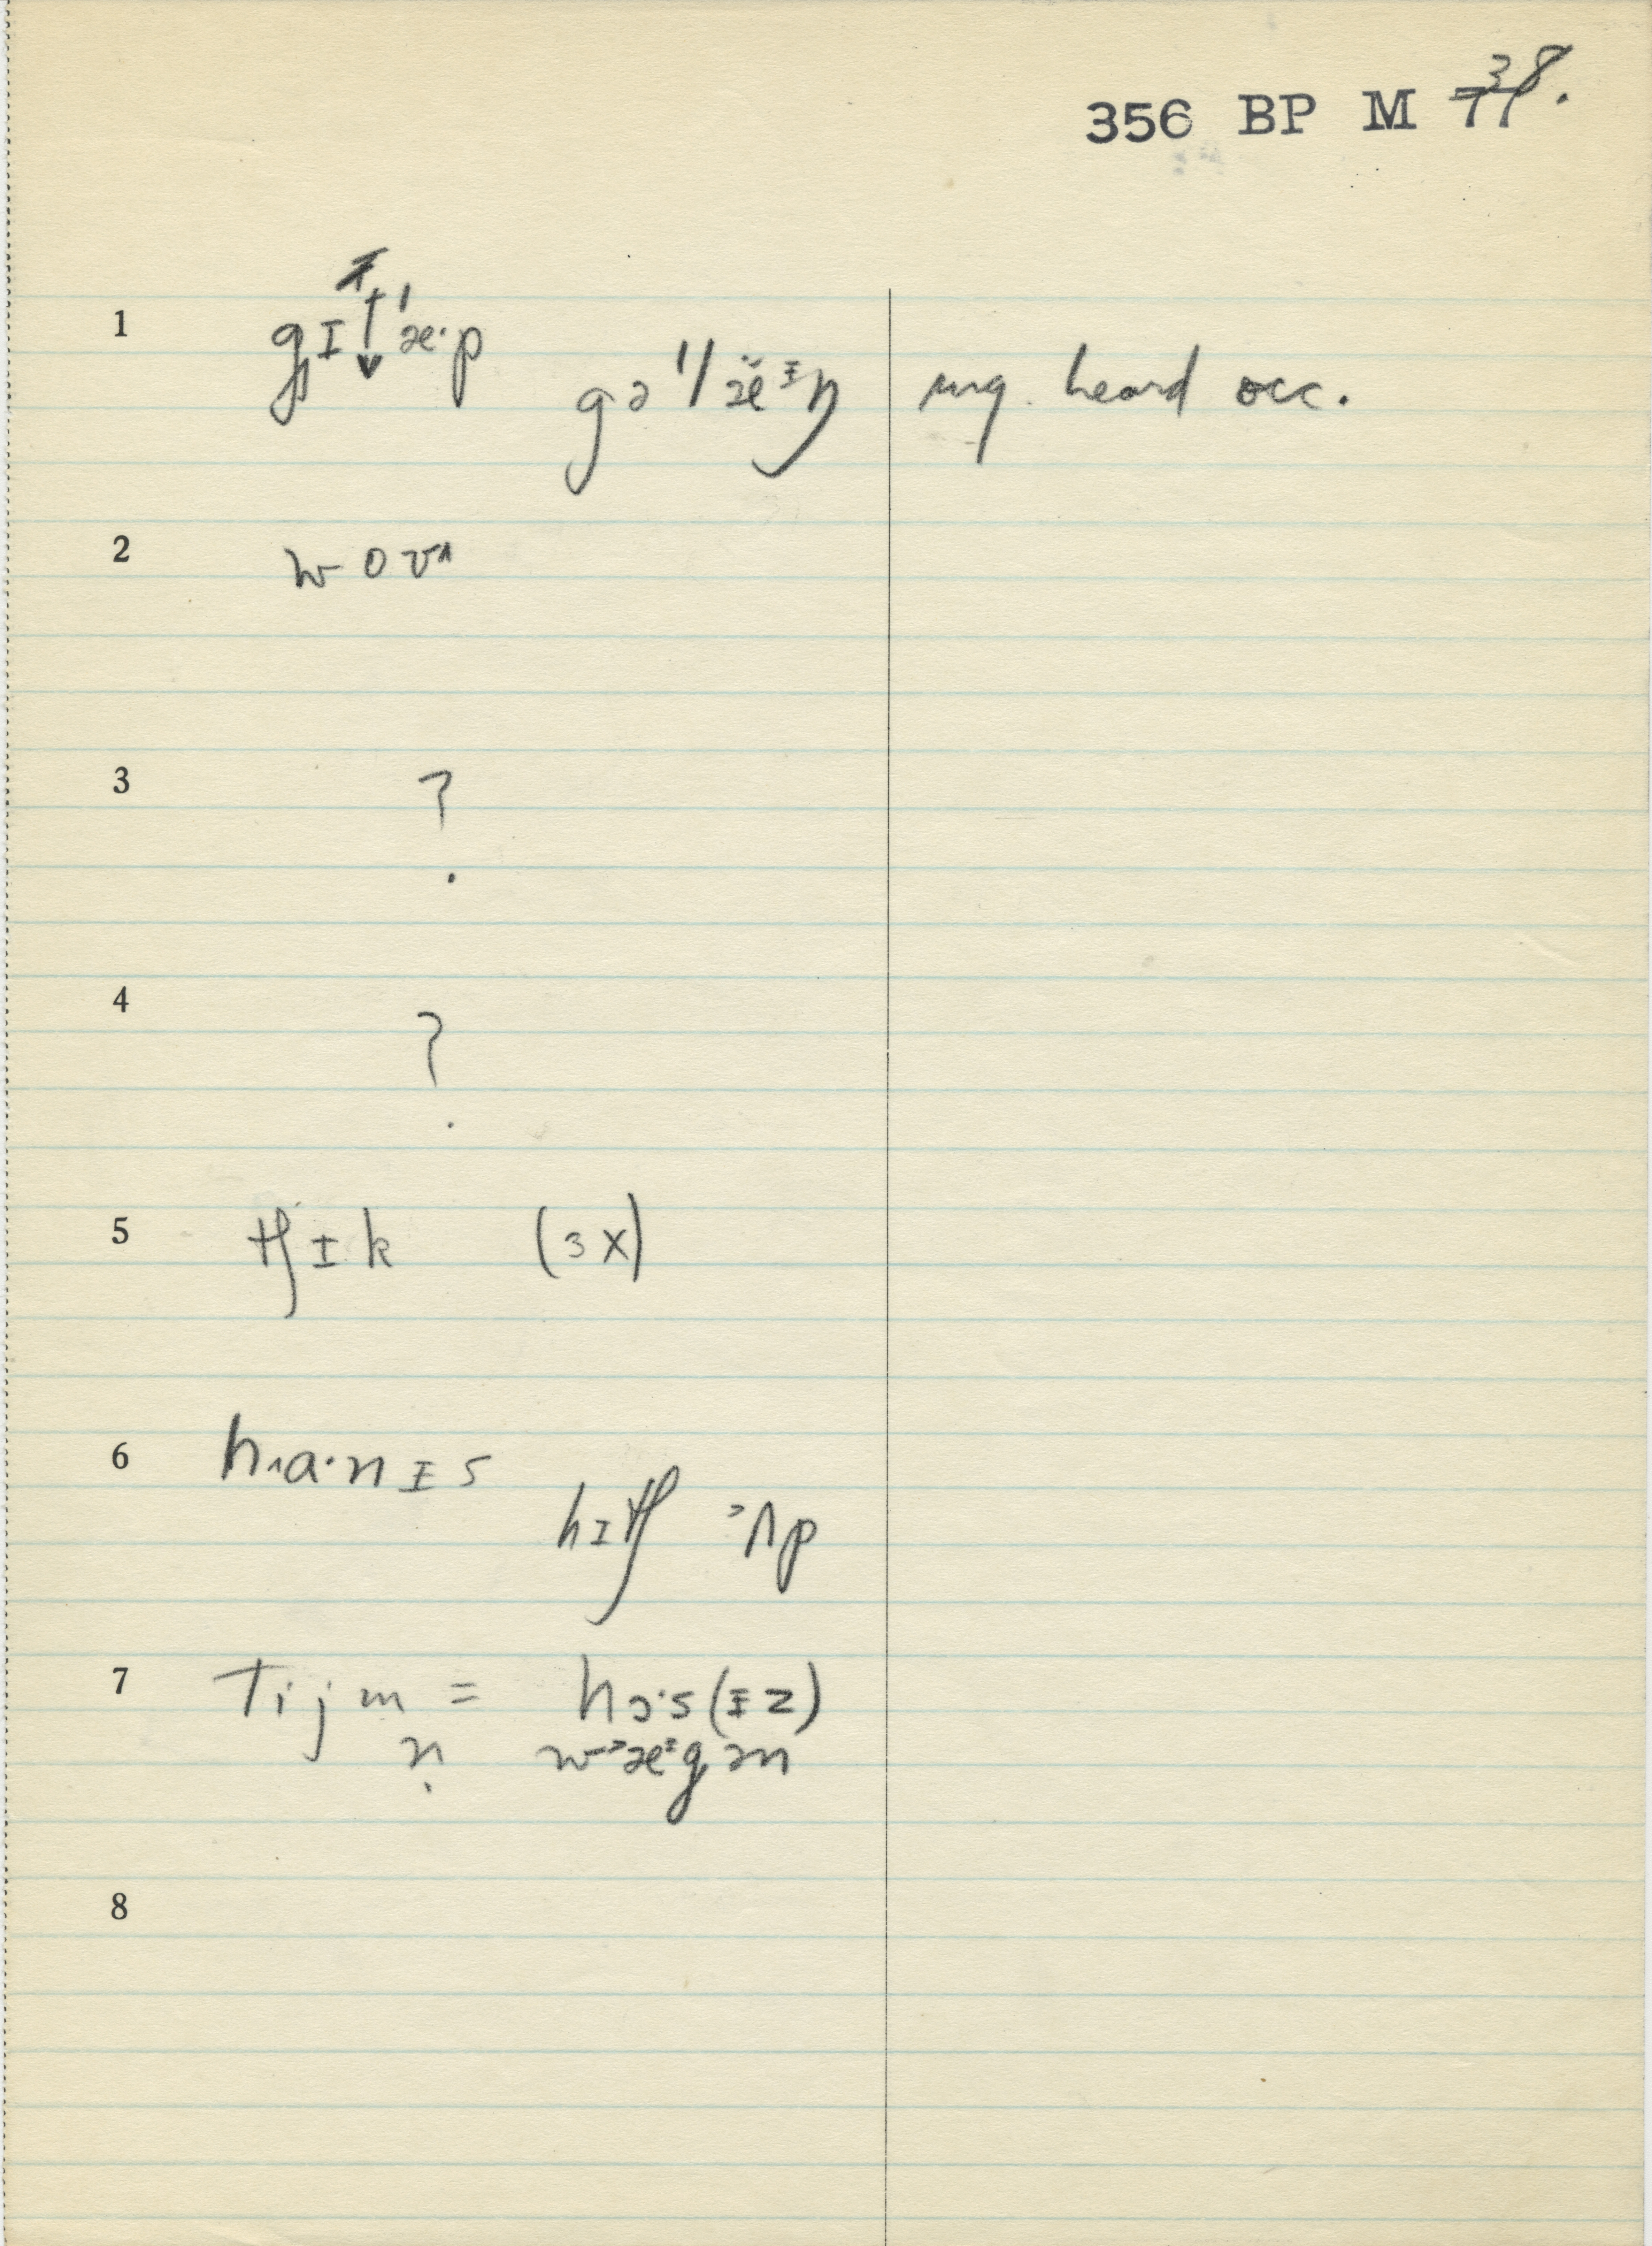 356 BP M 38.
1 gɪ↓ˈæ·p
gəˈlæᵻŋ ung heard occ.
2 woʊ^
3 ?
4 ?
5 tʃɪk (3X)
6 hʌa·nɪs
hɪtʃ ɔʌp
7 Tijm = hɔ·s(ᵻz)
n wæᵻgən
8